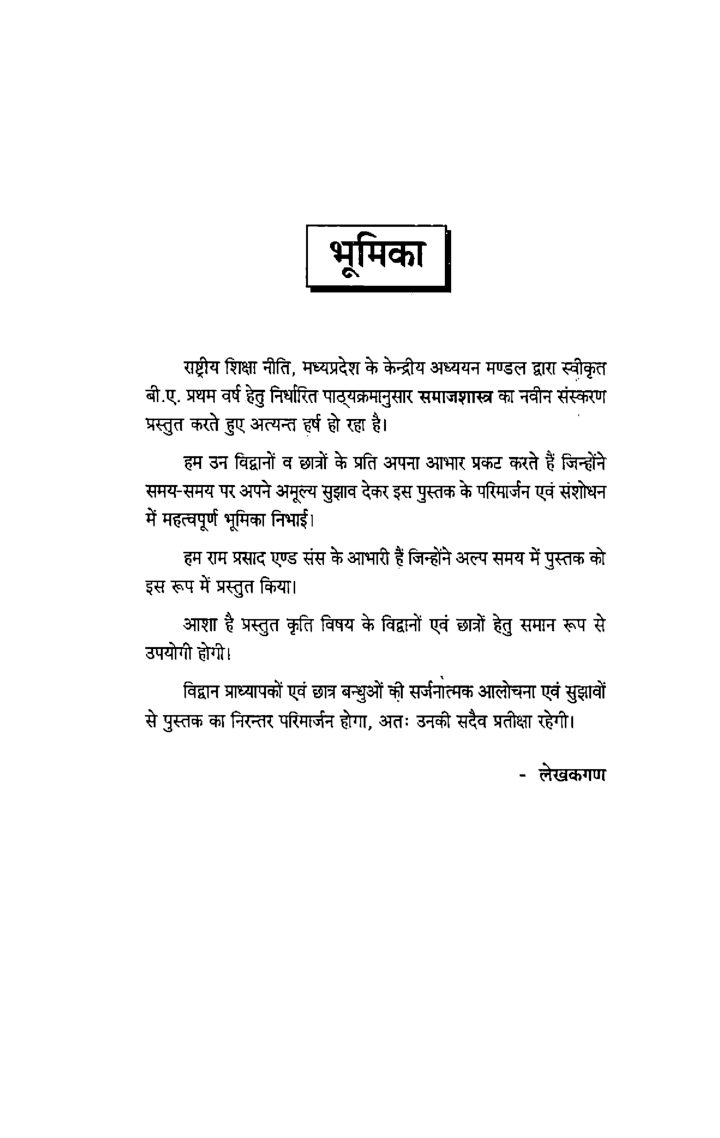 भूमिका
राष्ट्रीय शिक्षा नीति, मध्यप्रदेश के केन्द्रीय अध्ययन मण्डल द्वारा स्वीकृत
बी.ए. प्रथम वर्ष हेतु निर्धारित पाठ्यक्रमानुसार समाजशास्त्र का नवीन संस्करण
प्रस्तुत करते हुए अत्यन्त हर्ष हो रहा है।
हम उन विद्वानों व छात्रों के प्रति अपना आभार प्रकट करते हैं जिन्होंने
समय-समय पर अपने अमूल्य सुझाव देकर इस पुस्तक के परिमार्जन एवं संशोधन
में महत्वपूर्ण भूमिका निभाई।
हम राम प्रसाद एण्ड संस के आभारी हैं जिन्होंने अल्प समय में पुस्तक को
इस रूप में प्रस्तुत किया।
आशा है प्रस्तुत कृति विषय के विद्वानों एवं छात्रों हेतु समान रूप से
उपयोगी होगी।
विद्वान प्राध्यापकों एवं छात्र बन्धुओं की सर्जनात्मक आलोचना एवं सुझावों
से पुस्तक का निरन्तर परिमार्जन होगा, अतः उनकी सदैव प्रतीक्षा रहेगी।
- लेखकगण